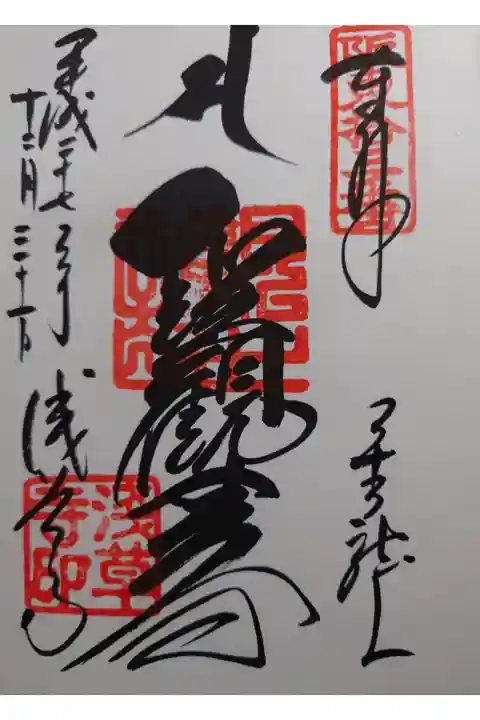 奉拝
金龍山
聖観世音
平成二十七年
十二月三十一日
浅草寺
浅草寺印